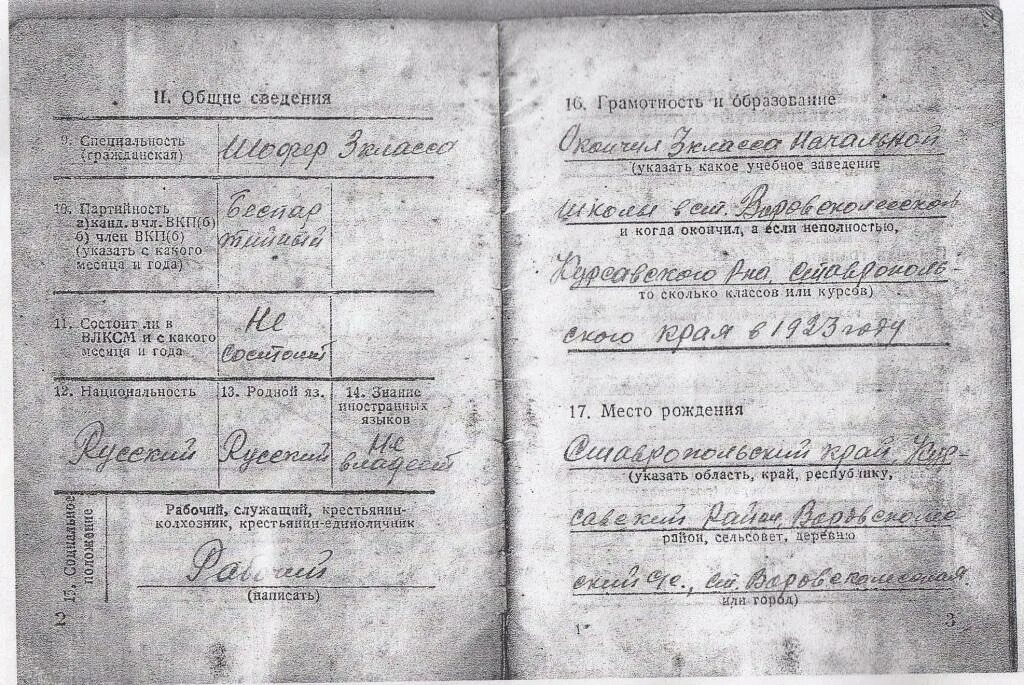 II. Общие сведения
9. Специальность
(гражданская)
Шофер 3 класса
10. Партийность
а) канд. в чл. ВКП(б)
б) член ВКП(б)
(указать с какого
месяца и года)
Беспар
тийный
11. Состоит ли в
ВЛКСМ и с какого
месяца и года
Не
состоит
12. Национальность
Русский
13. Родной яз.
Русский
14. Знание
иностранных
языков
Не
владеет
15. Социальное
положение
Рабочий, служащий, крестьянин-
колхозник, крестьянин-единоличник
Рабочий
(написать)
2
16. Грамотность и образование
Окончил 3 класса Начальной
(указать какое учебное заведение
школы в ст. Воровсколесской
и когда окончил, а если неполностью,
Курсавского р-на, Ставрополь-
то сколько классов или курсов)
ского края в 1923 году
17. Место рождения
Ставропольский край, Кур-
(указать область, край, республику,
савский район, Воровсколес
район, сельсовет, деревню
ский с/с., ст. Воровсколесская.
или город)
1*
3